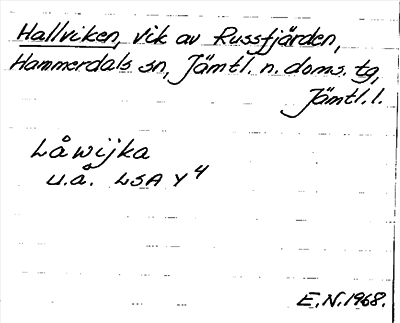 Hallviken, vik av Russfjärden,
Hammerdals sn, Jämtl. n. doms. tg,
Jämtl. l.
Låwijka
u.å. LSA Y4
E.N. 1968.